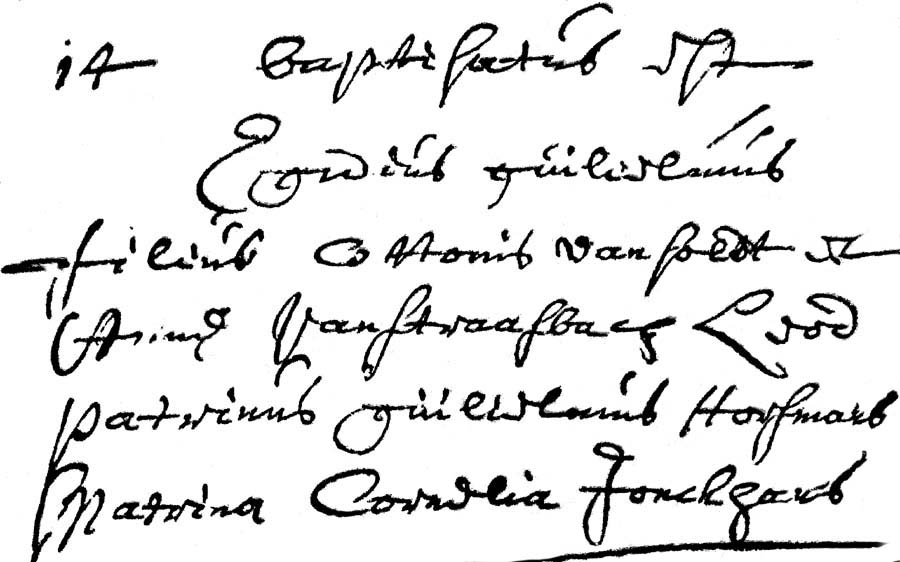 14 baptisatus est
Egidius guilielmus
filius Ottonis van soest et
Annę Vanstraasbach Leod
patrinus guilielmus Horsmans
Matrina Cornelia Jonckhans